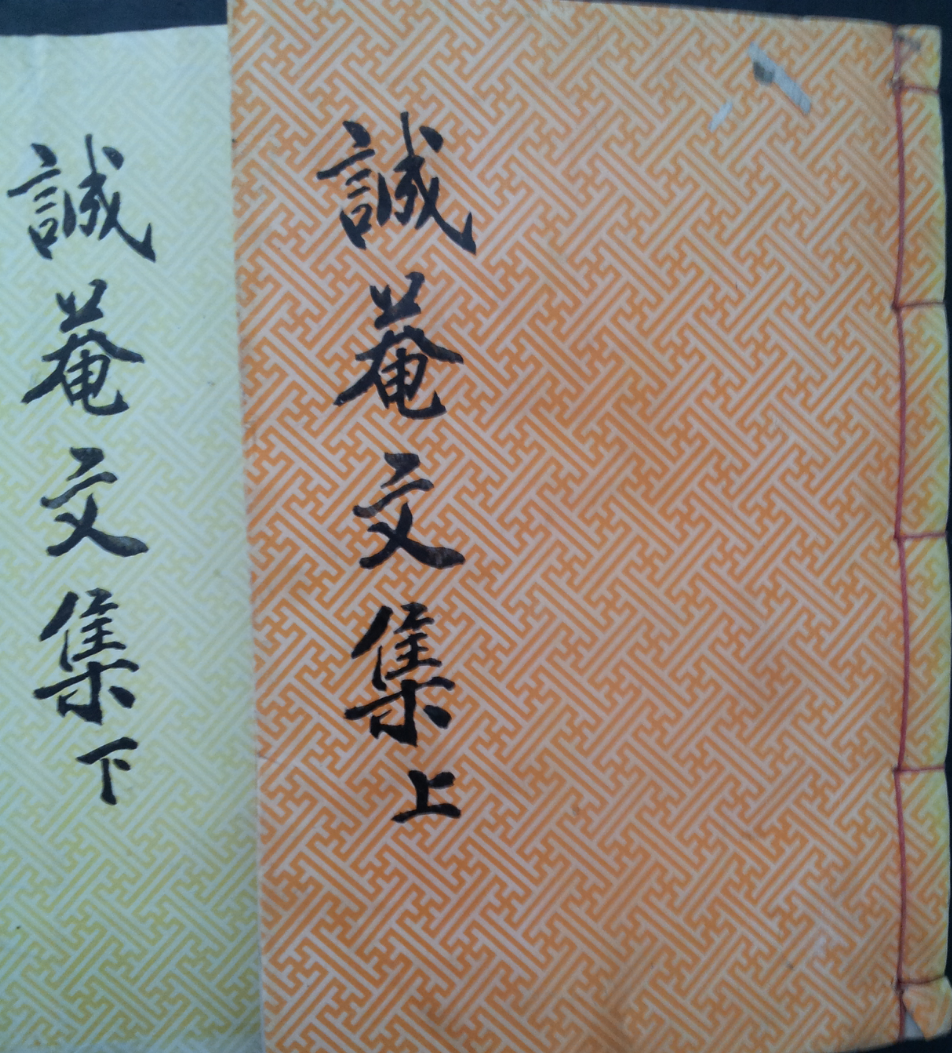 誠菴文集上
誠菴文集下